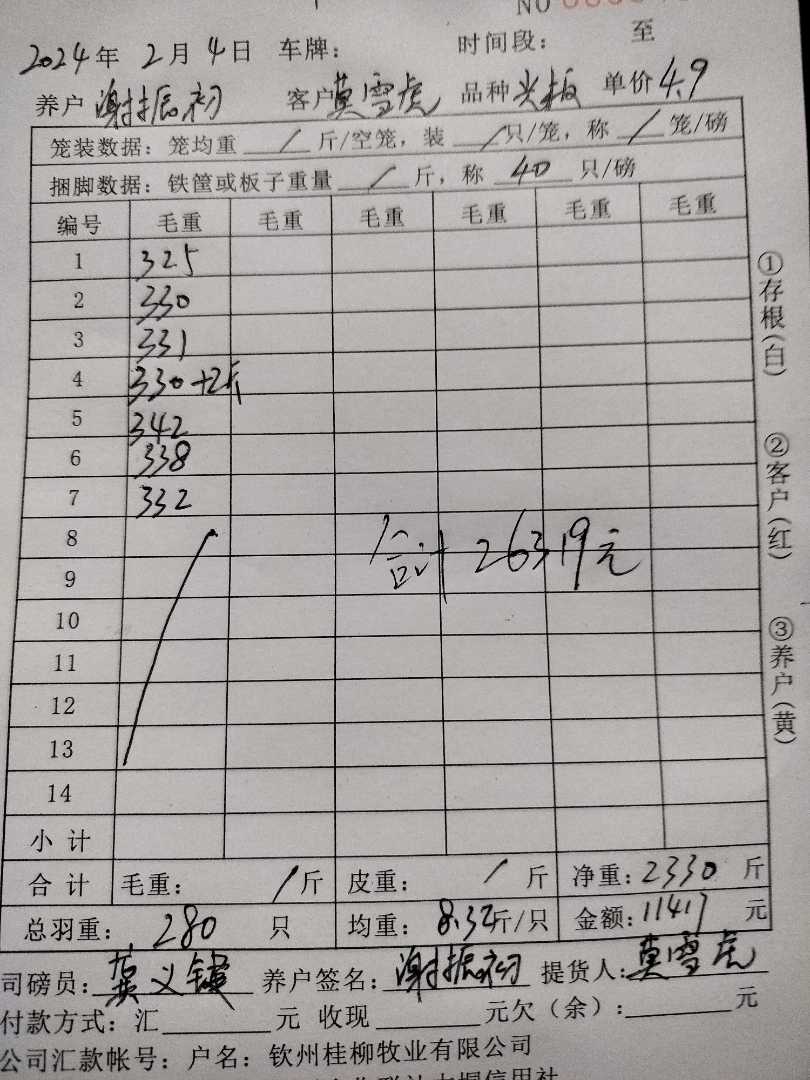 NO
2024年 2月 4日 车牌： 时间段： 至
养户 谢振初 客户 莫雪虎 品种 单价 4.9
笼装数据：笼均重 / 斤/空笼，装 / 只/笼，称 / 笼/磅
捆脚数据：铁筐或板子重量 / 斤，称 40 只/磅
编号 毛重 毛重 毛重 毛重 毛重 毛重
1 325
2 330
3 331
4 330+2斤
5 342
6 338
7 332
8
合计 26319元
9
10
11
12
13
14
小计
合计 毛重： / 斤 皮重： / 斤 净重：2330 斤
总羽重： 280 只 均重： 8.32斤/只 金额：11417 元
司磅员： 龚义 养户签名：谢振初 提货人：莫雪虎
付款方式：汇 元 收现 元欠（余）： 元
公司汇款帐号：户名：钦州桂柳牧业有限公司
①存根（白）
②客户（红）
③养户（黄）